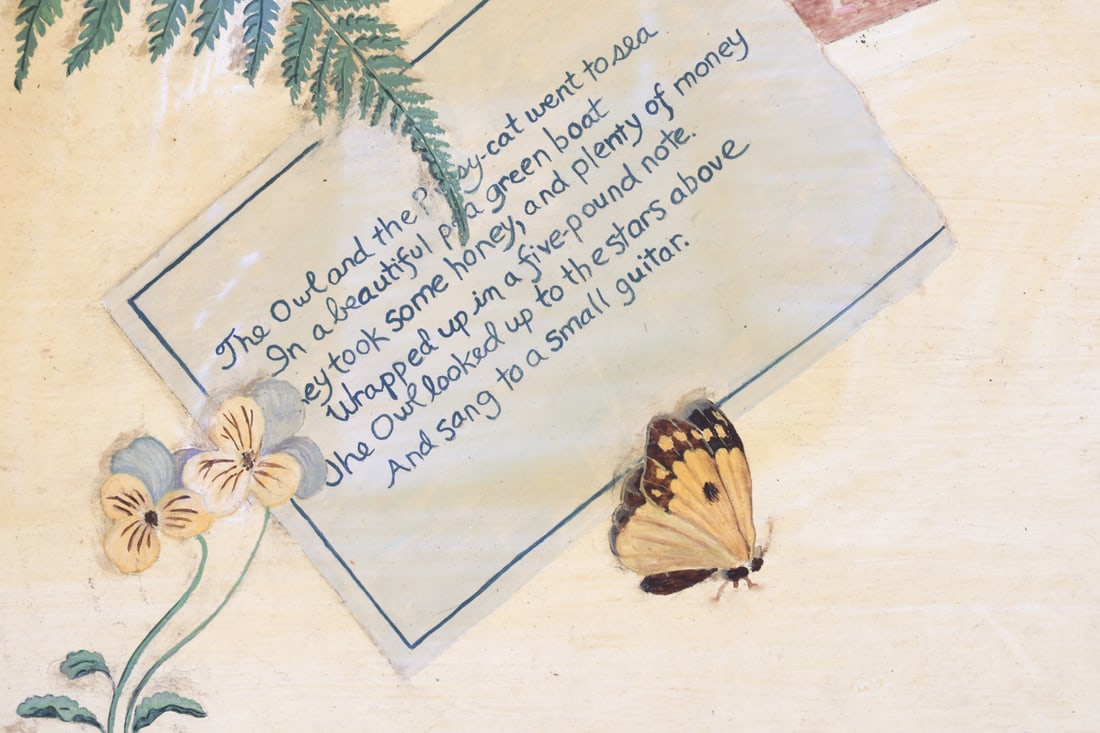 The Owl and the Pussy-cat went to sea
In a beautiful pea green boat
ey took some honey, and plenty of money
Wrapped up in a five-pound note.
The Owl looked up to the stars above
And sang to a small guitar.